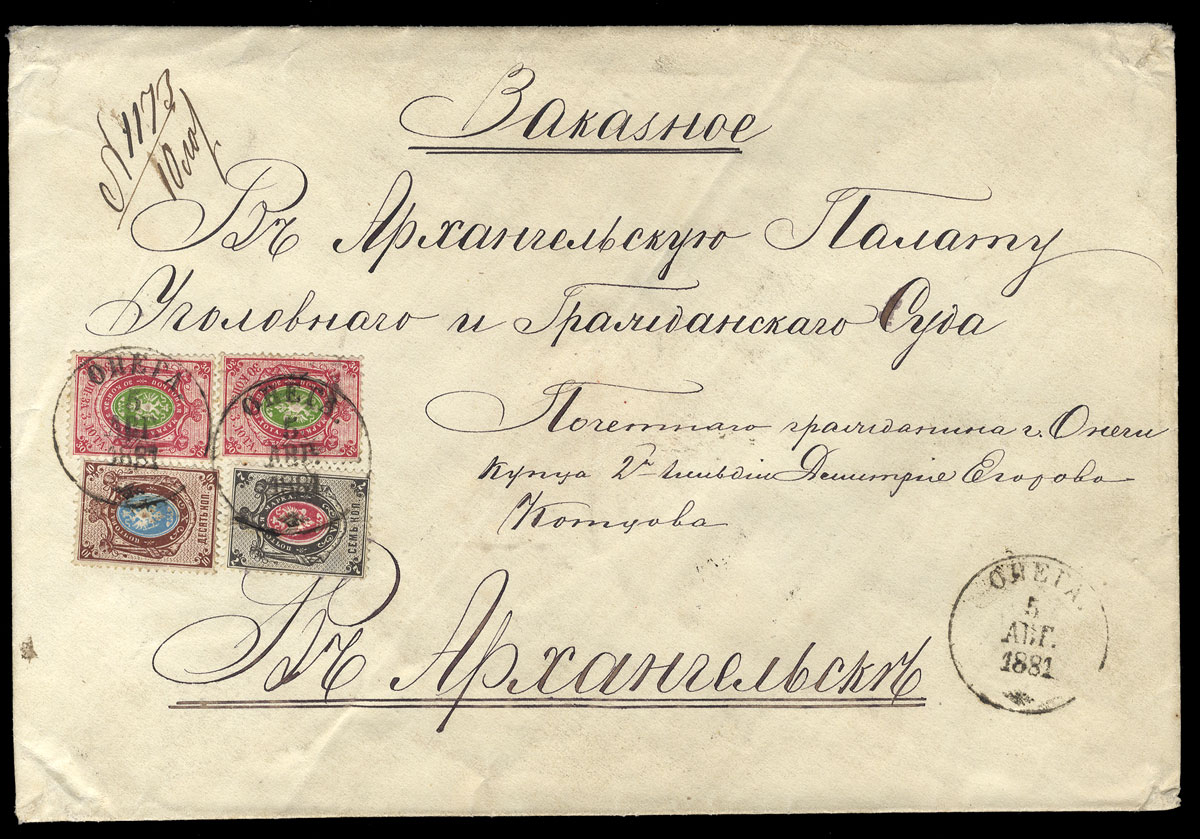 Заказное
№ 1173
10 лот
Въ Архангельскую Палату
Уголовнаго и Гражданскаго Суда
Почетнаго гражданина г. Онеги
Купца 2й гильдіи Дмитрія Егорова
Котцова
Въ Архангельскъ
ОНЕГА
5
АВГ.
1881
ОНЕГА.
5
АВГ.
1881
ДЕСЯТЬ КОП.
10
СЕМЬ КОП.
7
30
ОНЕГА.
5
АВГ.
1881